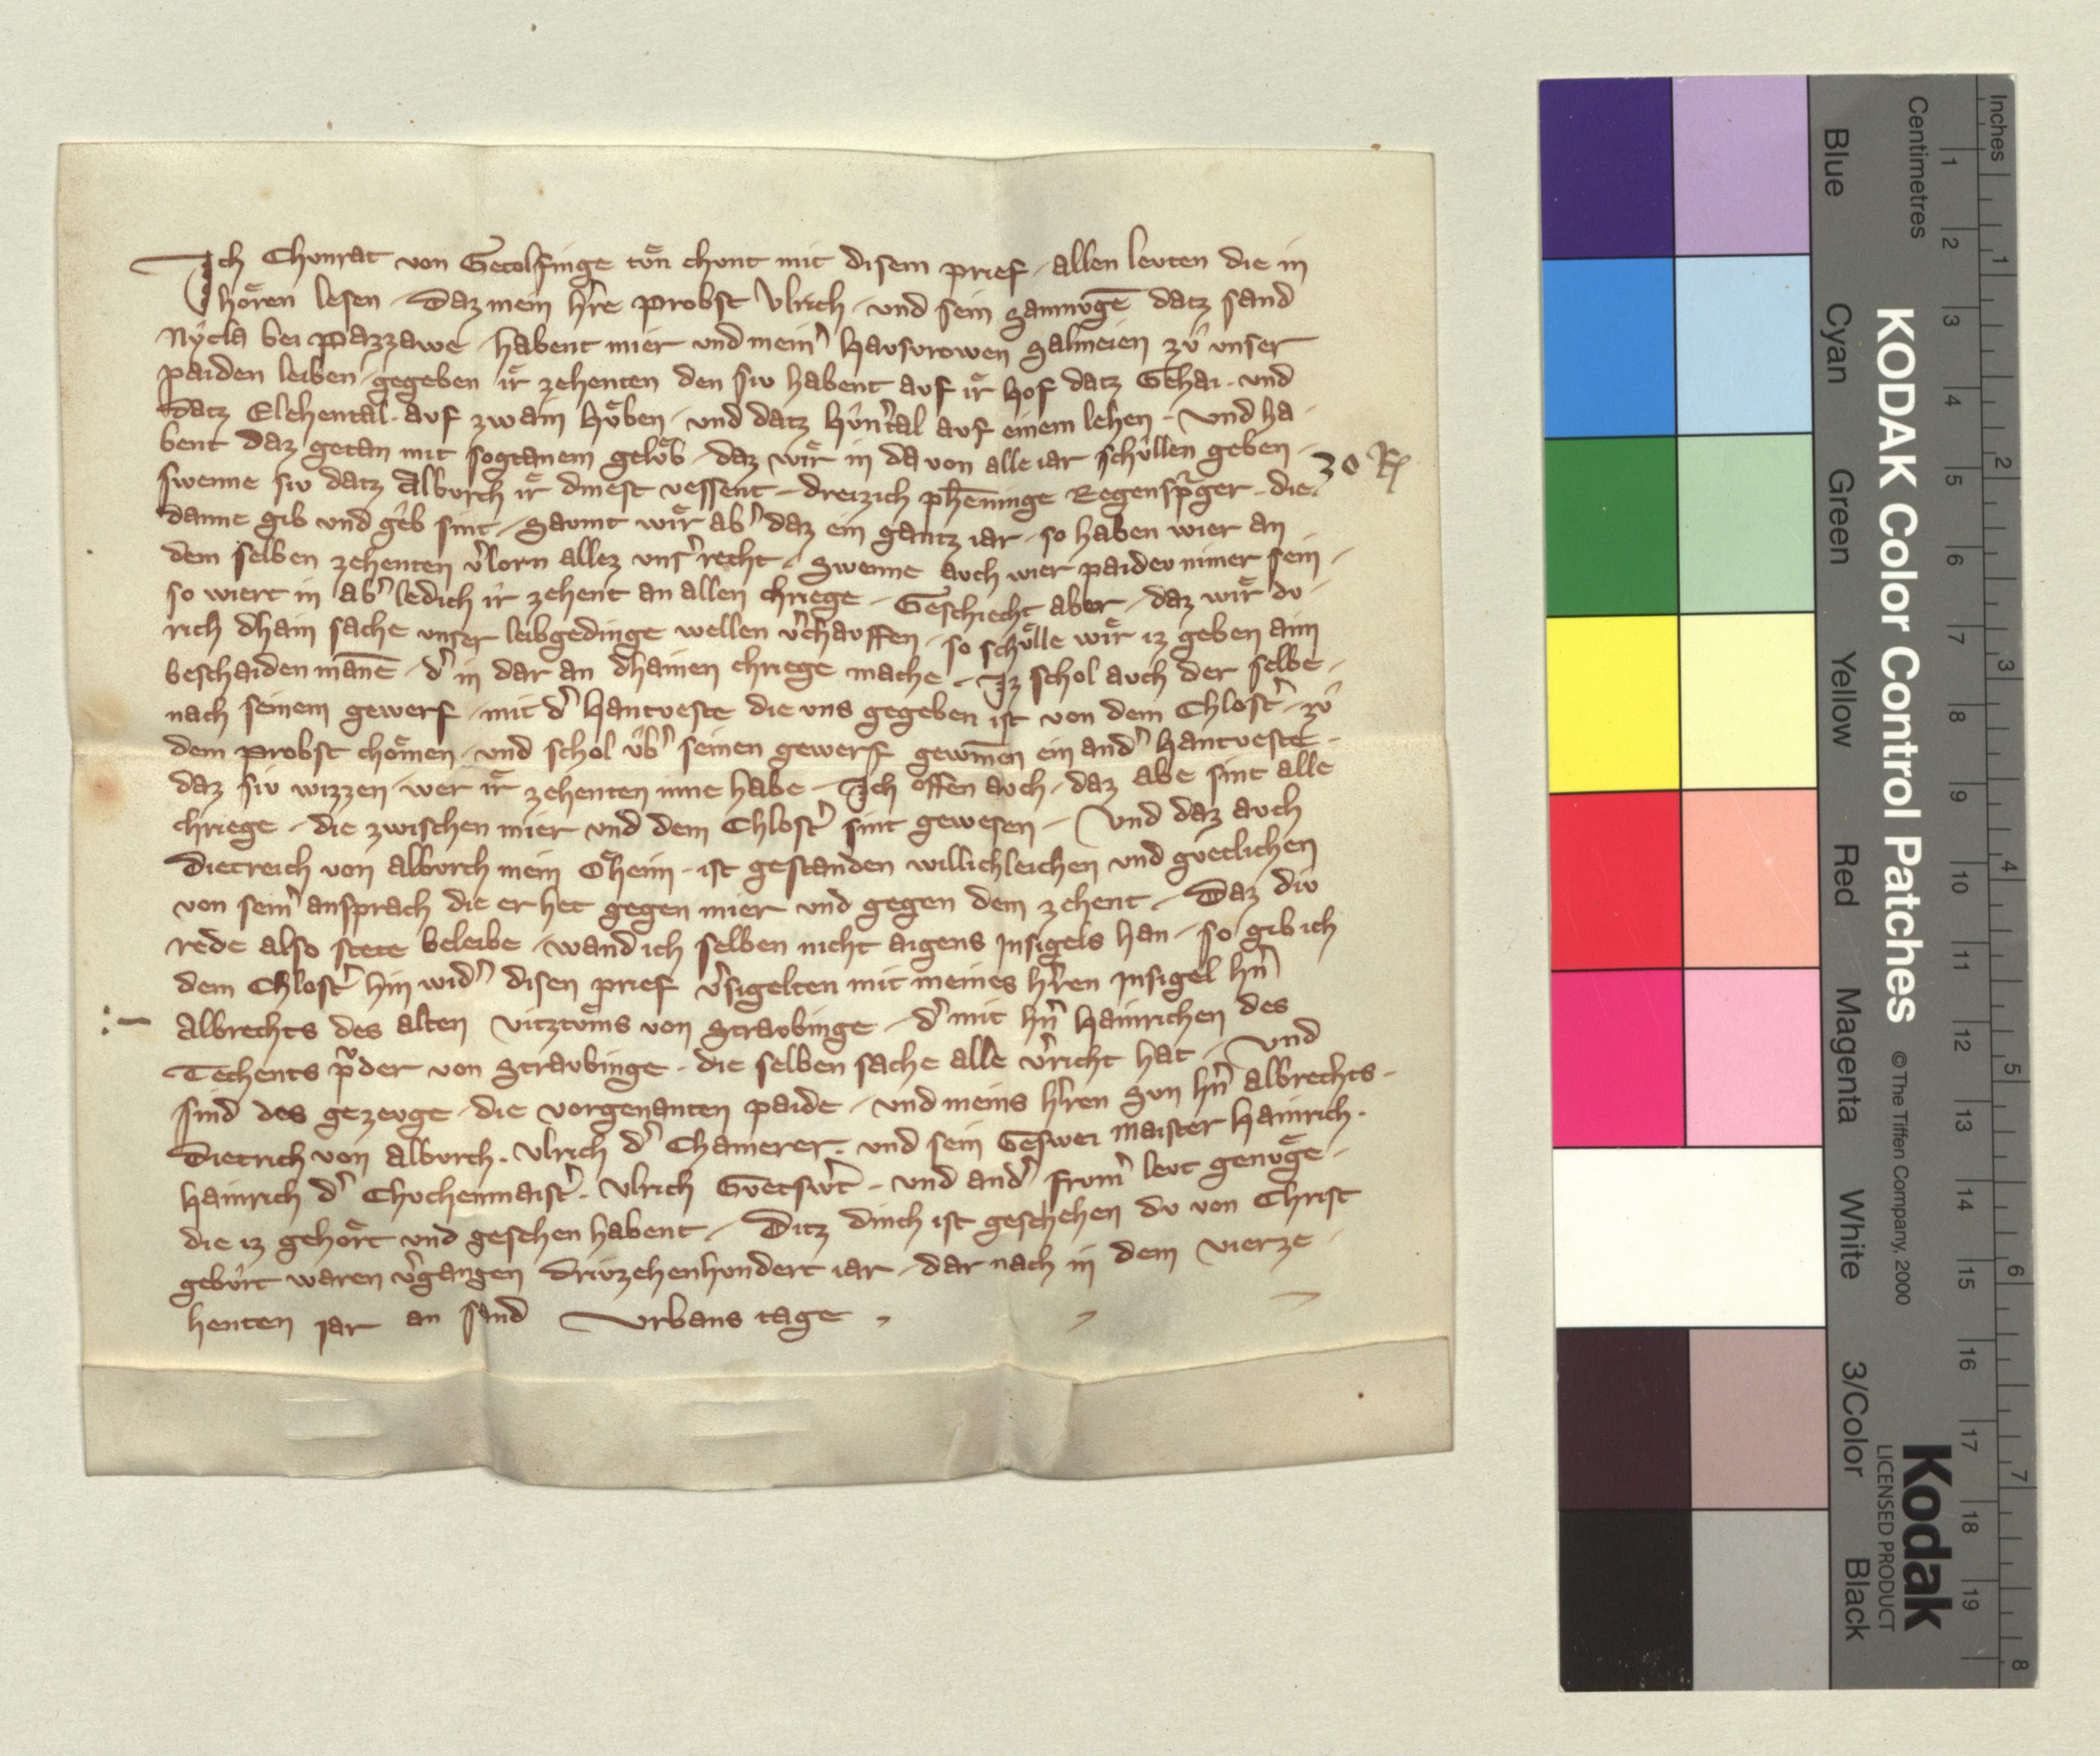 Ich Chunrat von Getolfinge tuͤn chunt mit disem prief / allen levten die in
hoͤren lesen / Daz mein hr̄e probst Vlrich / vnd sein Samnvgē datz sand
Nycla bei pazzawe / habent mier vnd mein' havsvrowen Salmeien zv̊ vnser
paiden leiben / gegeben ir zehenten den siv habent avf ir hof datz Gehai / vnd
datz Elehental / avf zwain hv̊ben / vnd datz hv̊nt'al avf einem lehen / Vnd ha /
bent daz getan mit sogtanem gelvb / daz wir in da von alle iar schv̊llen geben /
swenne siv datz Alburch ir dinest vessent / dreizich phēninge Regensp'ger / die
30 R
danne gib vnd geb sint / Savmt wir ab' daz ein gantz iar / so haben wier an
dem selben zehenten v'lorn allez vns' recht / Swenne avch wier paidev nimer sein /
so wiert in ab' ledich ir zehent an allen chriege / Geschiecht aber / daz wir dv /
rich dhain sache vnser leibgedinge wellen v'chavffen / so schv̊lle wir iz geben aim
beschaiden manē / d' in dar an dhainen chriege mache / Iz schol avch der selbe /
nach seinem gewerf / mit d' hantveste die vns gegeben ist von dem Chlost' / zv̊
dem probst choͤmen / vnd schol v̊b' seinen gewerf gewinnen ein and' hantveste /
daz siv wizzen / wer ir zehenten inne habe / Ich offen avch / daz abe sint alle
chriege / die zwischen mier vnd dem Chlost' sint gewesen / Vnd daz avch
Dietreich von Alburch mein Oͤheim / ist gestanden willichleichen vnd gvetlichen
von sein' ansprach die er het gegen mier vnd gegen dem zehent / Daz div
rede also stete beleibe / wand ich selben nicht aigens Insigels han / so gib ich
dem Chlost' hin wid' disen prief v'sigelten mit meines hr̄ren Insigel hn̄
Albrechts des alten vitztvͦms von Stravbinge / d' mit hn̄ Hainrichen des
Techents pr̊der von Stravbinge / die selben sache alle v'richt hat / Vnd
sind des gezevge / die vorgenanten paide / vnd meins hr̄ren Svn hn̄ Albrechts /
Dietrich von Alburch . Vlrich d' Chamerer . vnd sein Geswei Maister Hainrich .
Hainrich d' Chvchenmaist' . Vlrich Gvetsw't / vnd and' from' levt genvͦge /
die iz gehoͤrt vnd gesehen habent / Ditz dinch ist geschehen dv von Christ
gebv̊rt waren v'gangen drivzehenhvndert iar / dar nach in dem vierze /
henten iar an sand Vrbans tage /
KODAK Color Control Patches
© The Tiffen Company, 2000
Kodak
LICENSED PRODUCT
Inches
1 2 3 4 5 6 7 8
Centimetres
1 2 3 4 5 6 7 8 9 10 11 12 13 14 15 16 17 18 19
Blue
Cyan
Green
Yellow
Red
Magenta
White
3/Color
Black